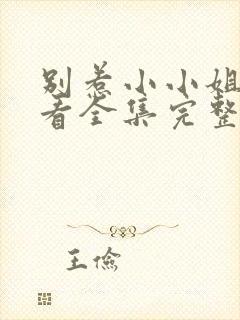 别惹小小姐
看全集完整
王俭